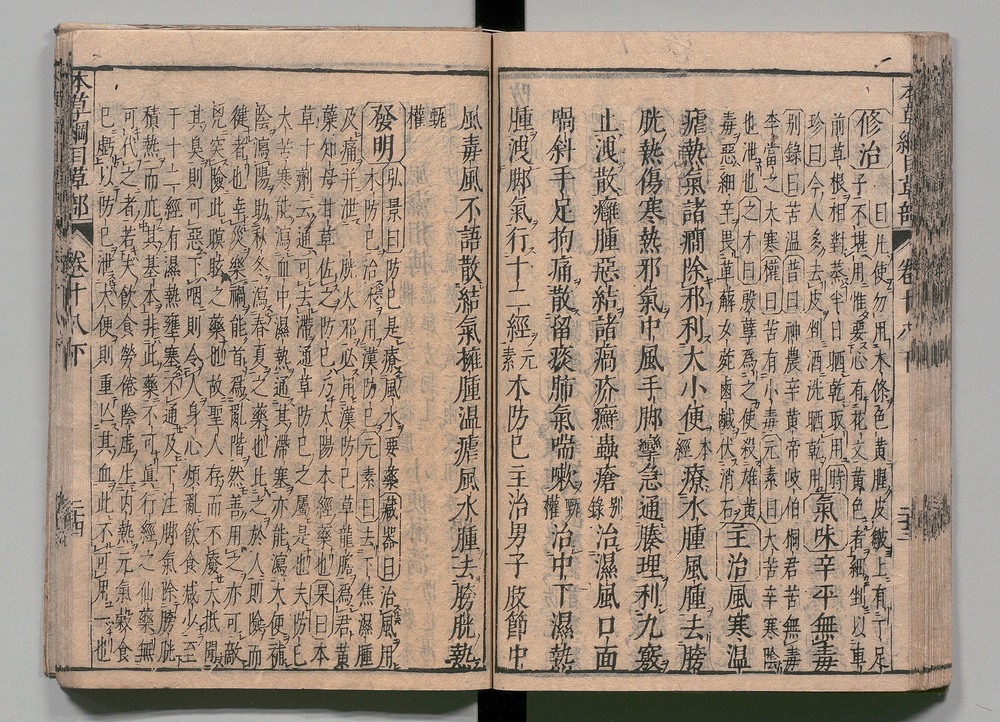 本草綱目草部 卷十八下 三十三
修治 斅曰凡使勿用木條色黃腥皮皺上有丁足
子不堪用惟要心有花文黃色者細剉以車
前草根相對蒸半日晒乾取用時
珍曰今人多去皮剉酒洗晒乾用 氣味辛平無毒
別錄曰苦溫普曰神農辛黃帝岐伯桐君苦無毒
李當之大寒權曰苦有小毒元素曰大苦辛寒陰
也泄也之才曰殷孽爲之使殺雄黃
毒惡細辛畏萆薢女菀鹵鹹伏消石 主治風寒溫
瘧熱氣諸癎除邪利大小便本經療水腫風腫去膀
胱熱傷寒熱邪氣中風手脚攣急通腠理利九竅
止洩散癰腫惡結諸瘑疥癬蟲瘡別錄治濕風口面
喎斜手足拘痛散留痰肺氣喘嗽甄權治中下濕熱
腫洩脚氣行十二經元素木防巳主治男子肢節中
風毒風不語散結氣擁腫溫瘧風水腫去膀胱熱
甄權
發明 弘景曰防巳是療風水要藥藏器曰治風用
木防巳治水用漢防巳元素曰去下焦濕腫
及痛并泄膀胱火邪必用漢防巳草龍膽爲君黃
蘗知母甘草佐之防巳乃太陽本經藥也杲曰本
草十劑云通可去滯通草防巳之屬是也夫防巳
大苦寒能瀉血中濕熱通其滯塞亦能瀉大便補
陰瀉陽助秋冬瀉春夏之藥也比之於人則險而
健者也幸災樂禍能首爲亂階然善用之亦可敵
兇突險此瞑眩之藥也故聖人存而不廢大抵聞
其臭則可惡下咽則令人身心煩亂飲食減少至
于十二經有濕熱壅塞不通及下注脚氣除膀胱
積熱而庇其基本非此藥不可眞行經之仙藥無
可代之者若夫飲食勞倦陰虛生內熱元氣穀食
巳虧以防巳泄大便則重亡其血此不可用一也
本草綱目草部 卷十八下 三十四